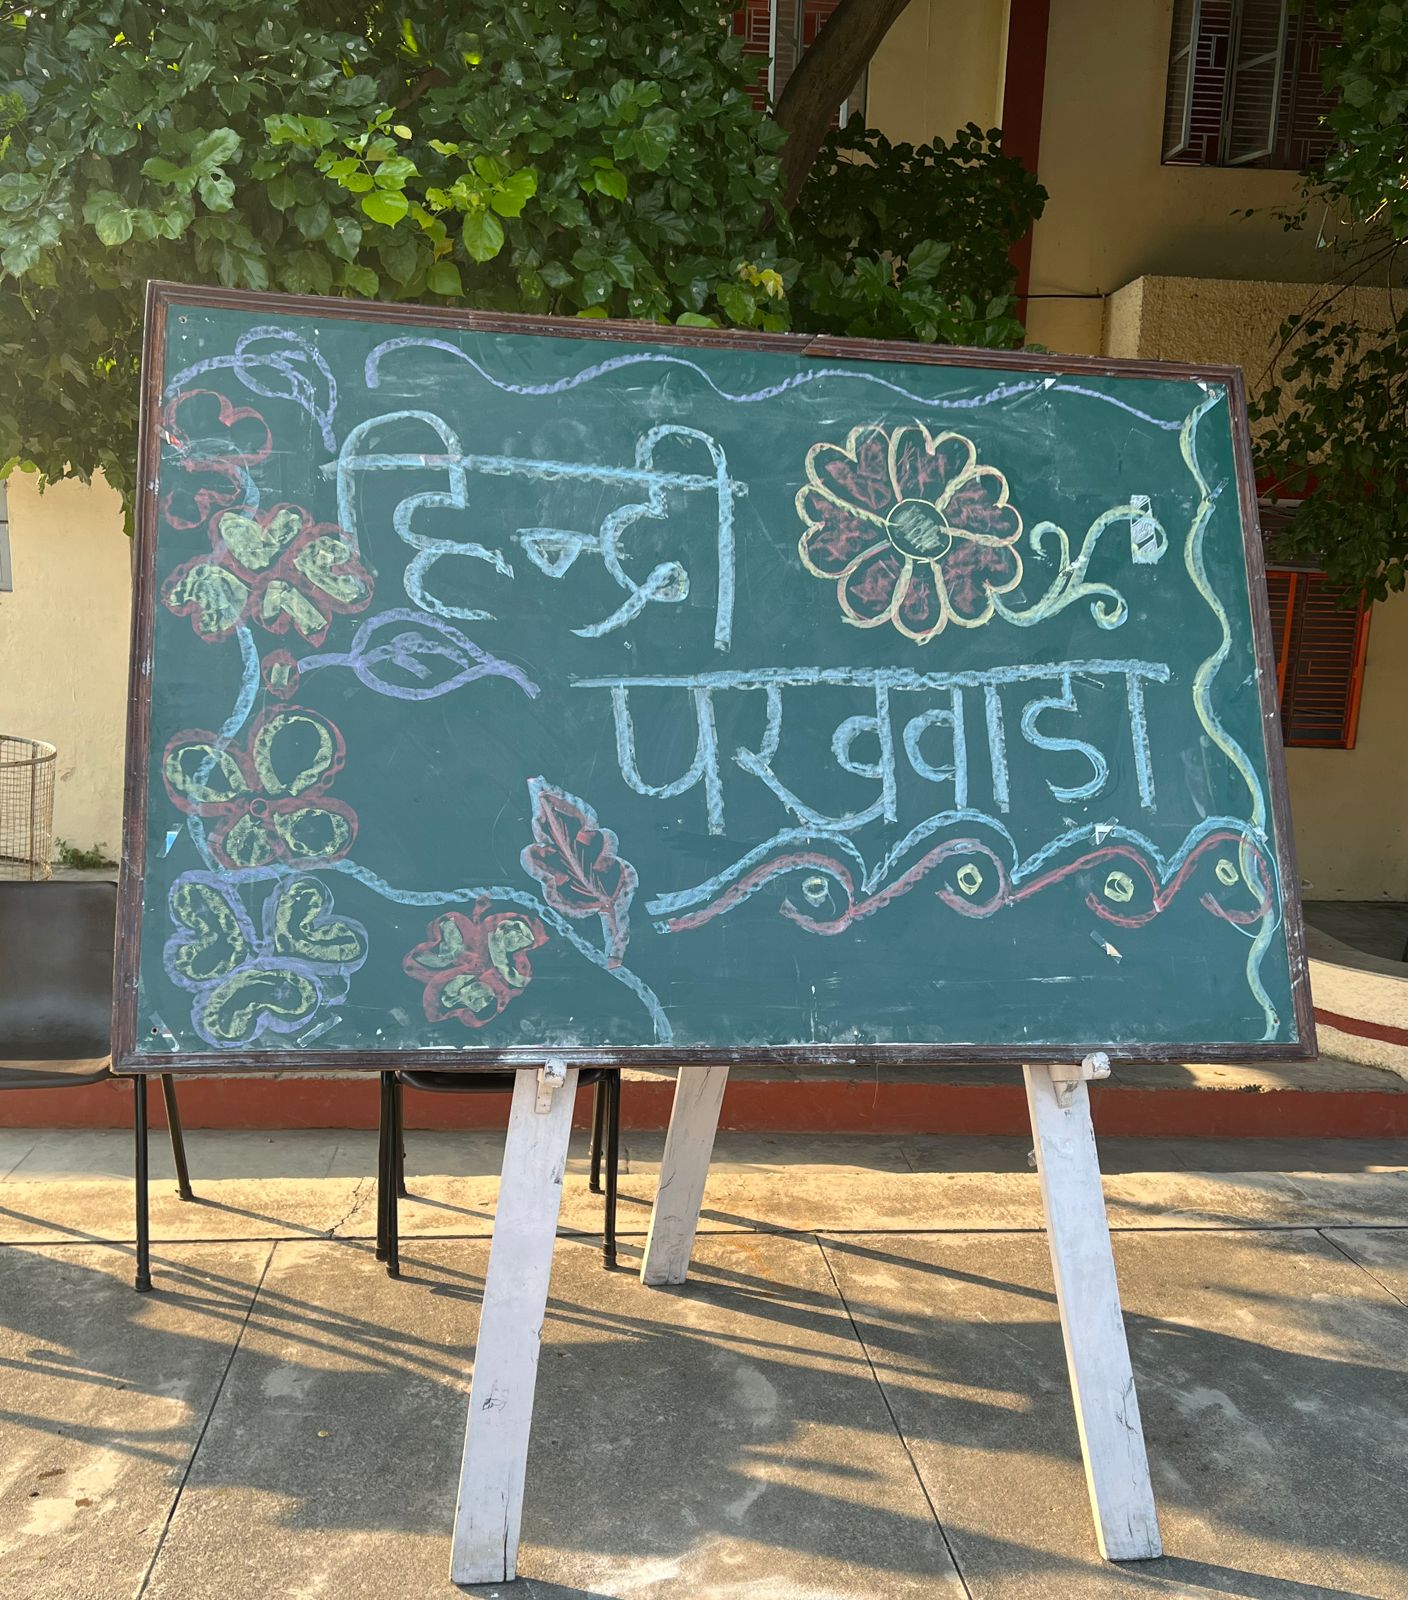 हिन्दी
पखवाडा